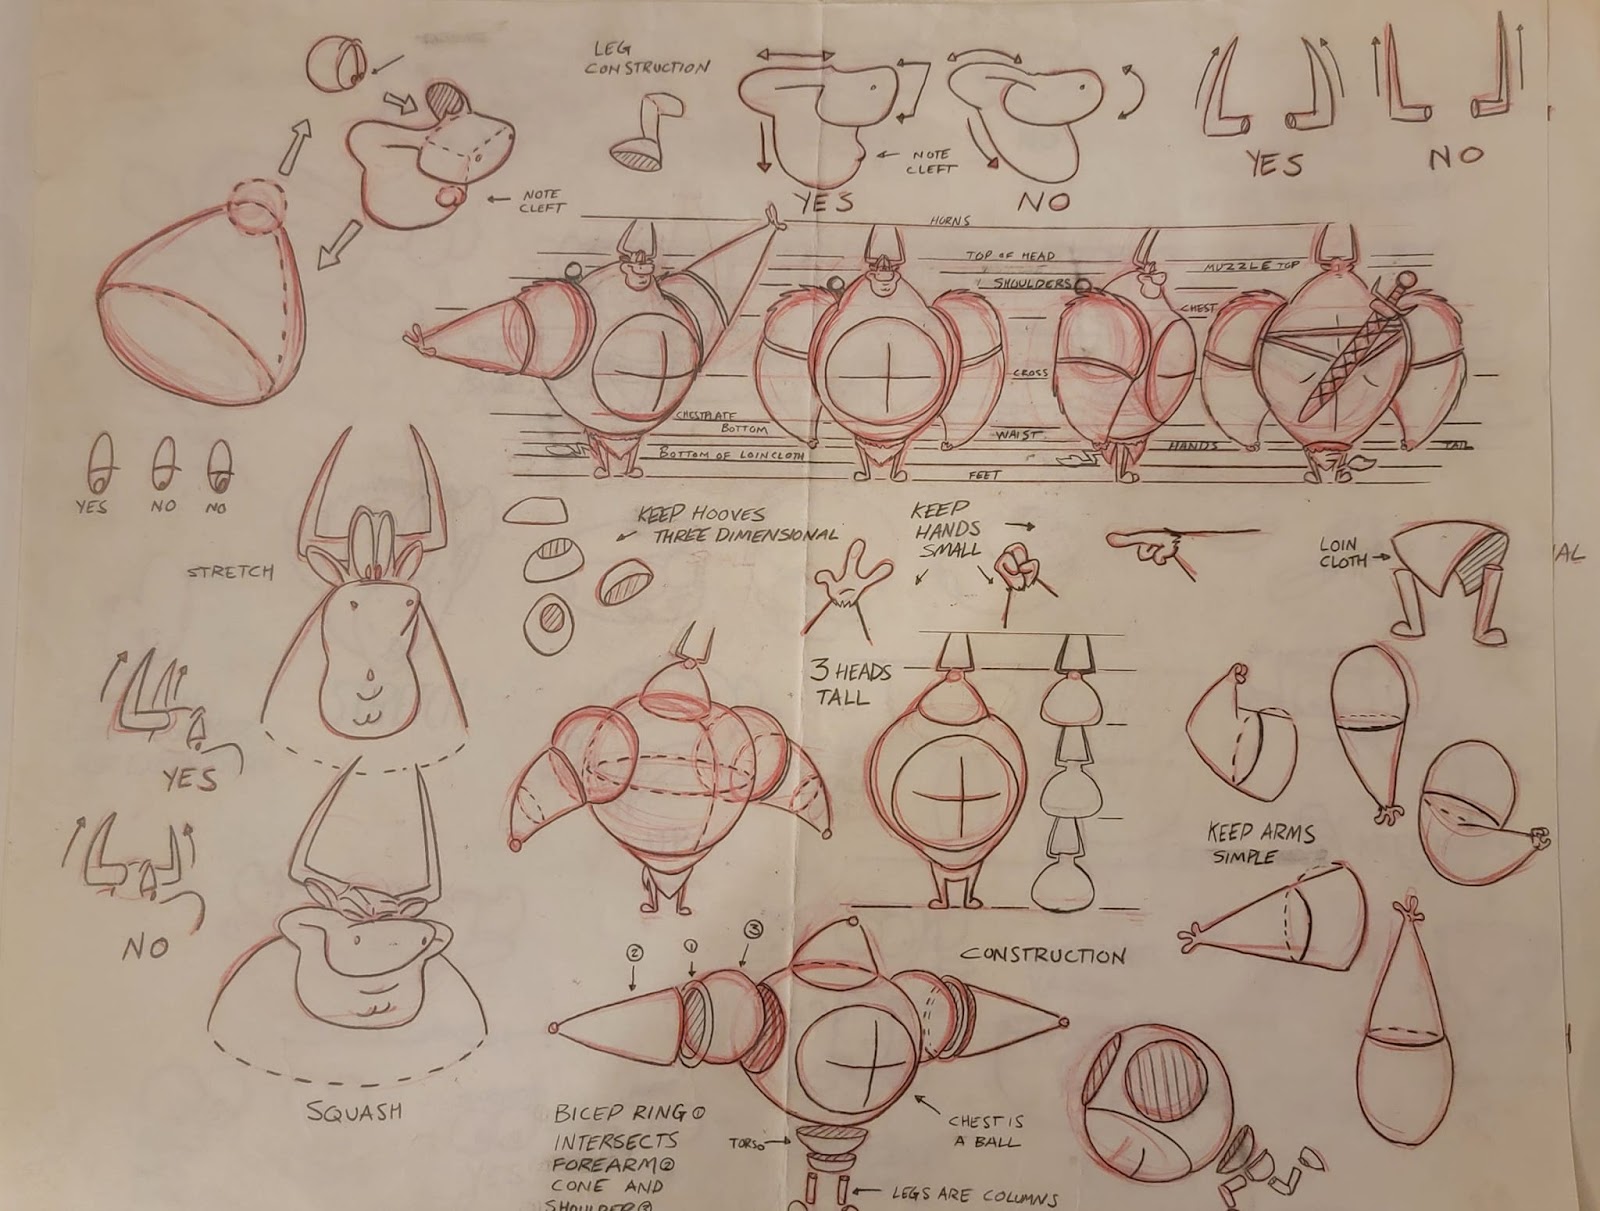 LEG
CONSTRUCTION
NOTE
CLEFT
YES
NOTE
CLEFT
NO
YES
NO
HORNS
TOP OF HEAD
MUZZLE TOP
SHOULDERS
CHEST
CROSS
CHESTPLATE
BOTTOM
WAIST
HANDS
TAIL
BOTTOM OF LOINCLOTH
FEET
YES
NO
NO
STRETCH
KEEP HOOVES
THREE DIMENSIONAL
KEEP
HANDS
SMALL
LOIN
CLOTH
IAL
YES
NO
3 HEADS
TALL
KEEP ARMS
SIMPLE
SQUASH
② ① ③
CONSTRUCTION
BICEP RING ①
INTERSECTS
FOREARM ②
CONE AND
SHOULDER ③
TORSO
CHEST IS
A BALL
LEGS ARE COLUMNS